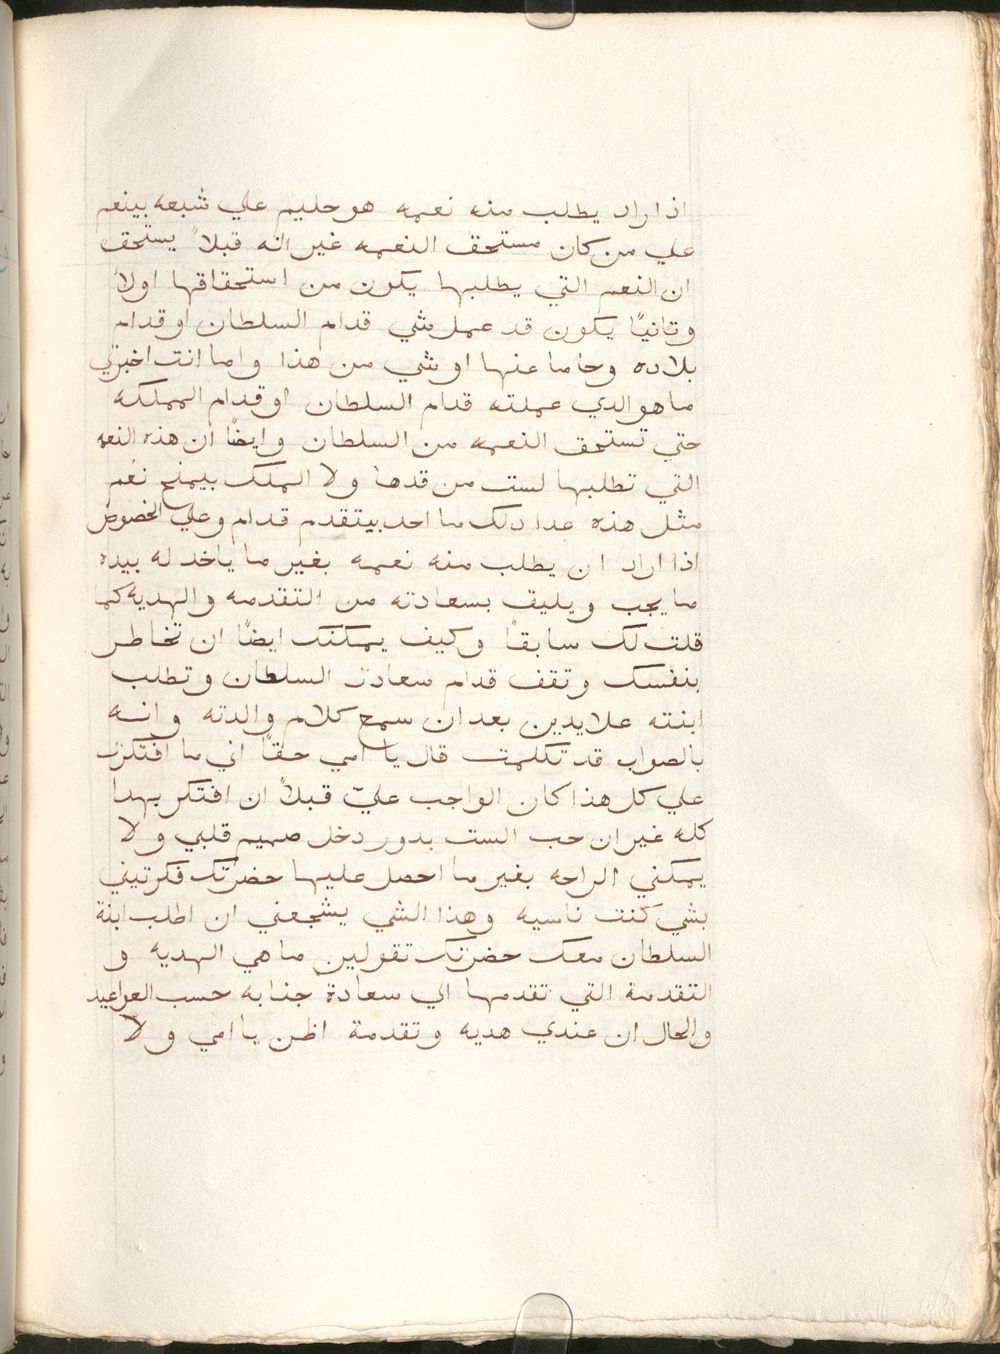 اذا اراد يطلب منه نعمه هو حليم علي شبعه بينعم
علي من كان مستحق النعمه غير انه قبلاً يستحق
ان النعم التي يطلبها يكون من استحقاقها اولاً
وتانيًا يكون قد عمل شي قدام السلطان او قدام
بلاده وحاما عنها او شي من هذا واما انت اخبرني
ما هو الدي عملته قدام السلطان او قدام المملكه
حتي تستحق النعمه من السلطان وايضًا ان هذه النعمه
التي تطلبها لست من قدها ولا الملك بيمنح نعم
مثل هذه عدا دلك ما احد بيتقدم قدام وعلي الخصوص
اذا اراد ان يطلب منه نعمه بغير ما ياخد له بيده
ما يجب ويليق بسعادته من التقدمه والهديه كما
قلت لك سابقاً وكيف يمكنك ايضًا ان تخاطر
بنفسك وتقف قدام سعادت السلطان وتطلب
ابنته علايدين بعد ان سمع كلام والدته وانه
بالصواب قد تكلمت قال يا امي حقاً اني ما افتكرت
علي كل هذا كان الواجب عليّ قبلاً ان افتكر بهدا
كله غير ان حب الست بدور دخل صميم قلبي ولا
يمكني الراحه بغير ما احصل عليها حضرتك فكرتيني
بشي كنت ناسيه وهذا الشي يشجعني ان اطلب ابنة
السلطان معك حضرتك تقولين ما هي الهديه و
التقدمة التي تقدمها الي سعادة جنابه حسب العوايد
والحال ان عندي هديه وتقدمة اظن يا امي ولا